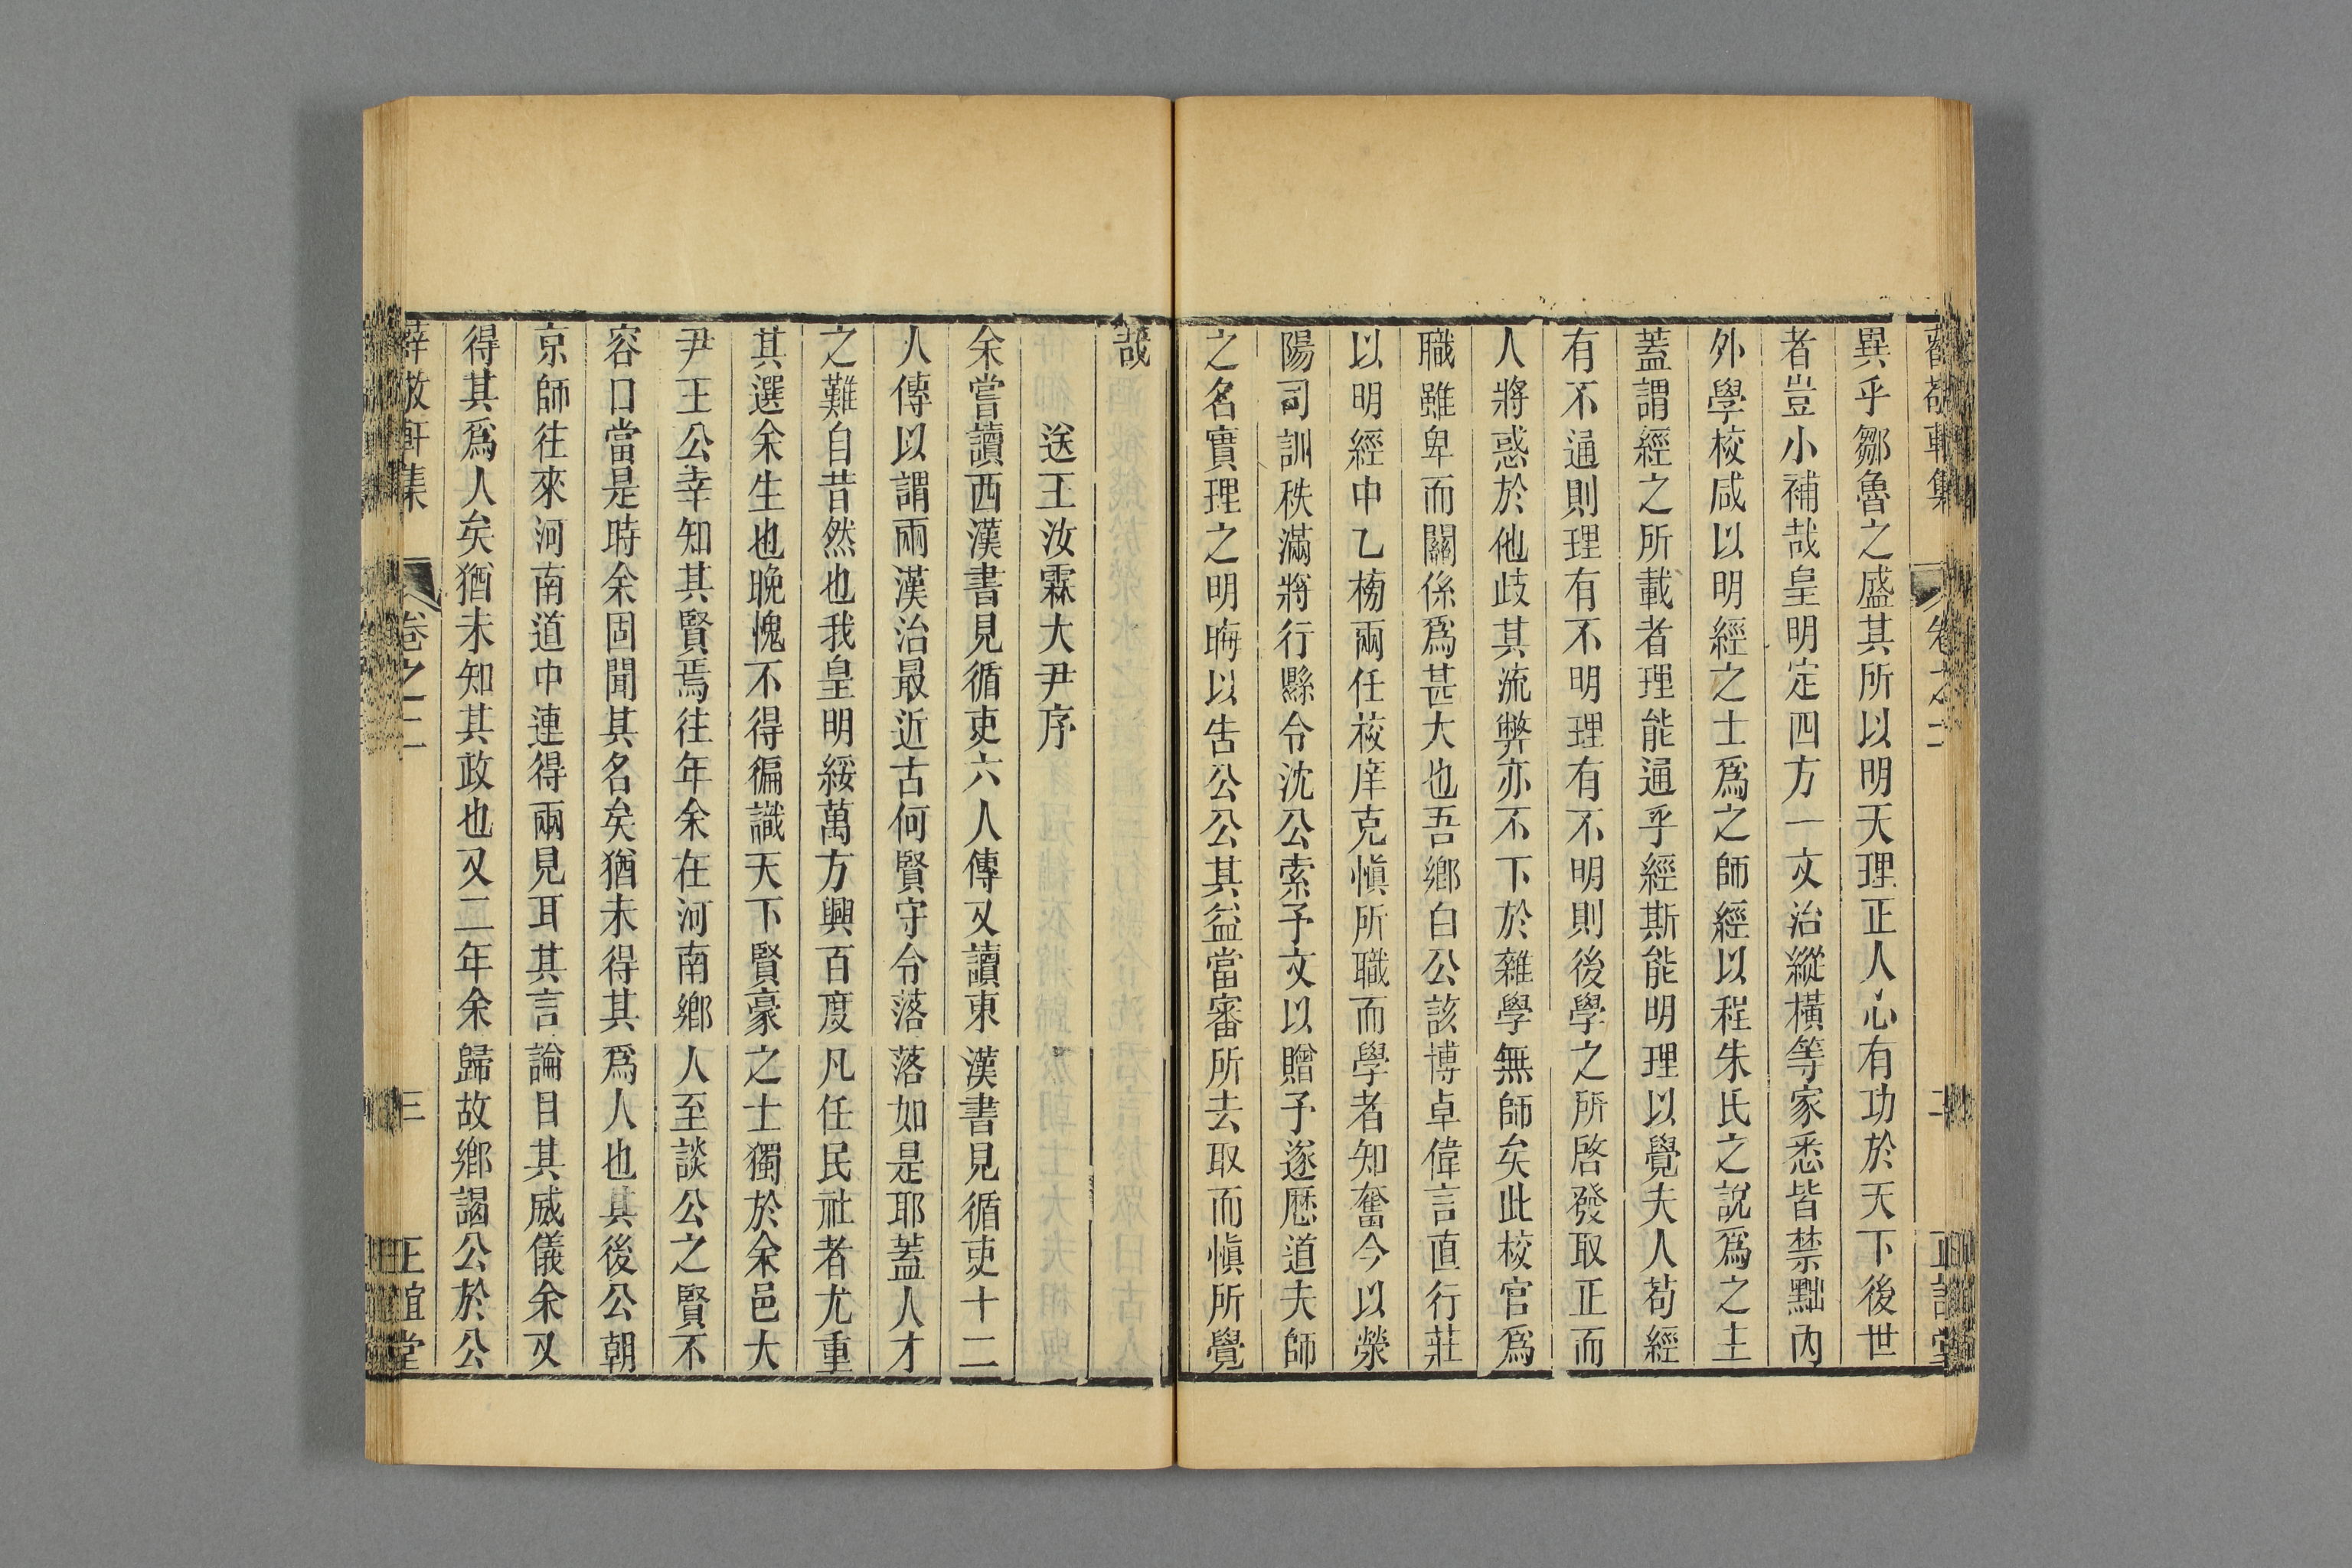 異乎鄒魯之盛其所以明天理正人心有功於天下後世
者豈小補哉皇明定四方一文治縱橫等家悉皆禁黜內
外學校咸以明經之士爲之師經以程朱氏之說爲之主
蓋謂經之所載者理能通乎經斯能明理以覺夫人苟經
有不通則理有不明理有不明則後學之所啓發取正而
人將惑於他歧其流弊亦不下於雜學無師矣此校官爲
職雖卑而關係爲甚大也吾鄉白公該博卓偉言直行莊
以明經中乙榜兩任校庠克愼所職而學者知奮今以滎
陽司訓秩滿將行縣令沈公索予文以贈予遂歷道夫師
之名實理之明晦以告公公其益當審所去取而愼所覺
哉
送王汝霖大尹序
余嘗讀西漢書見循吏六人傳又讀東漢書見循吏十二
人傳以謂兩漢治最近古何賢守令落落如是耶蓋人才
之難自昔然也我皇明綏萬方興百度凡任民社者尤重
其選余生也晚愧不得徧識天下賢豪之士獨於余邑大
尹王公幸知其賢焉往年余在河南鄉人至談公之賢不
容口當是時余固聞其名矣猶未得其爲人也其後公朝
京師往來河南道中連得兩見耳其言論目其威儀余又
得其爲人矣猶未知其政也又二年余歸故鄉謁公於公
薛敬軒集 卷之二 三 正誼堂